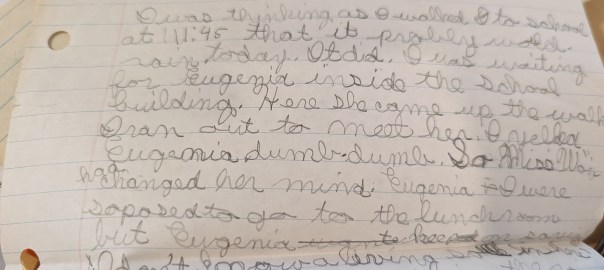 I was thinking as I walked to school
at 11:45 that it probly would
rain today. It did. I was waiting
for Eugenia inside the school
building. Here she came up the walk
I ran out to meet her. I yelled
Eugenia dumb-dumb. So Miss
had changed her mind. Eugenia + I were
saposed to go to the lunchroom
but Eugenia to keep on saying
I don't